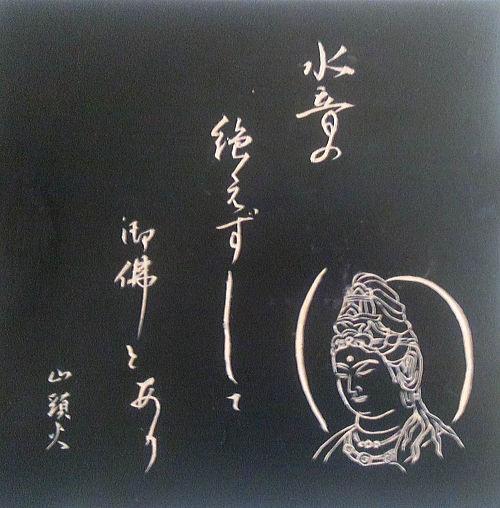 水音の
絶えずして
御佛とあり
山頭火